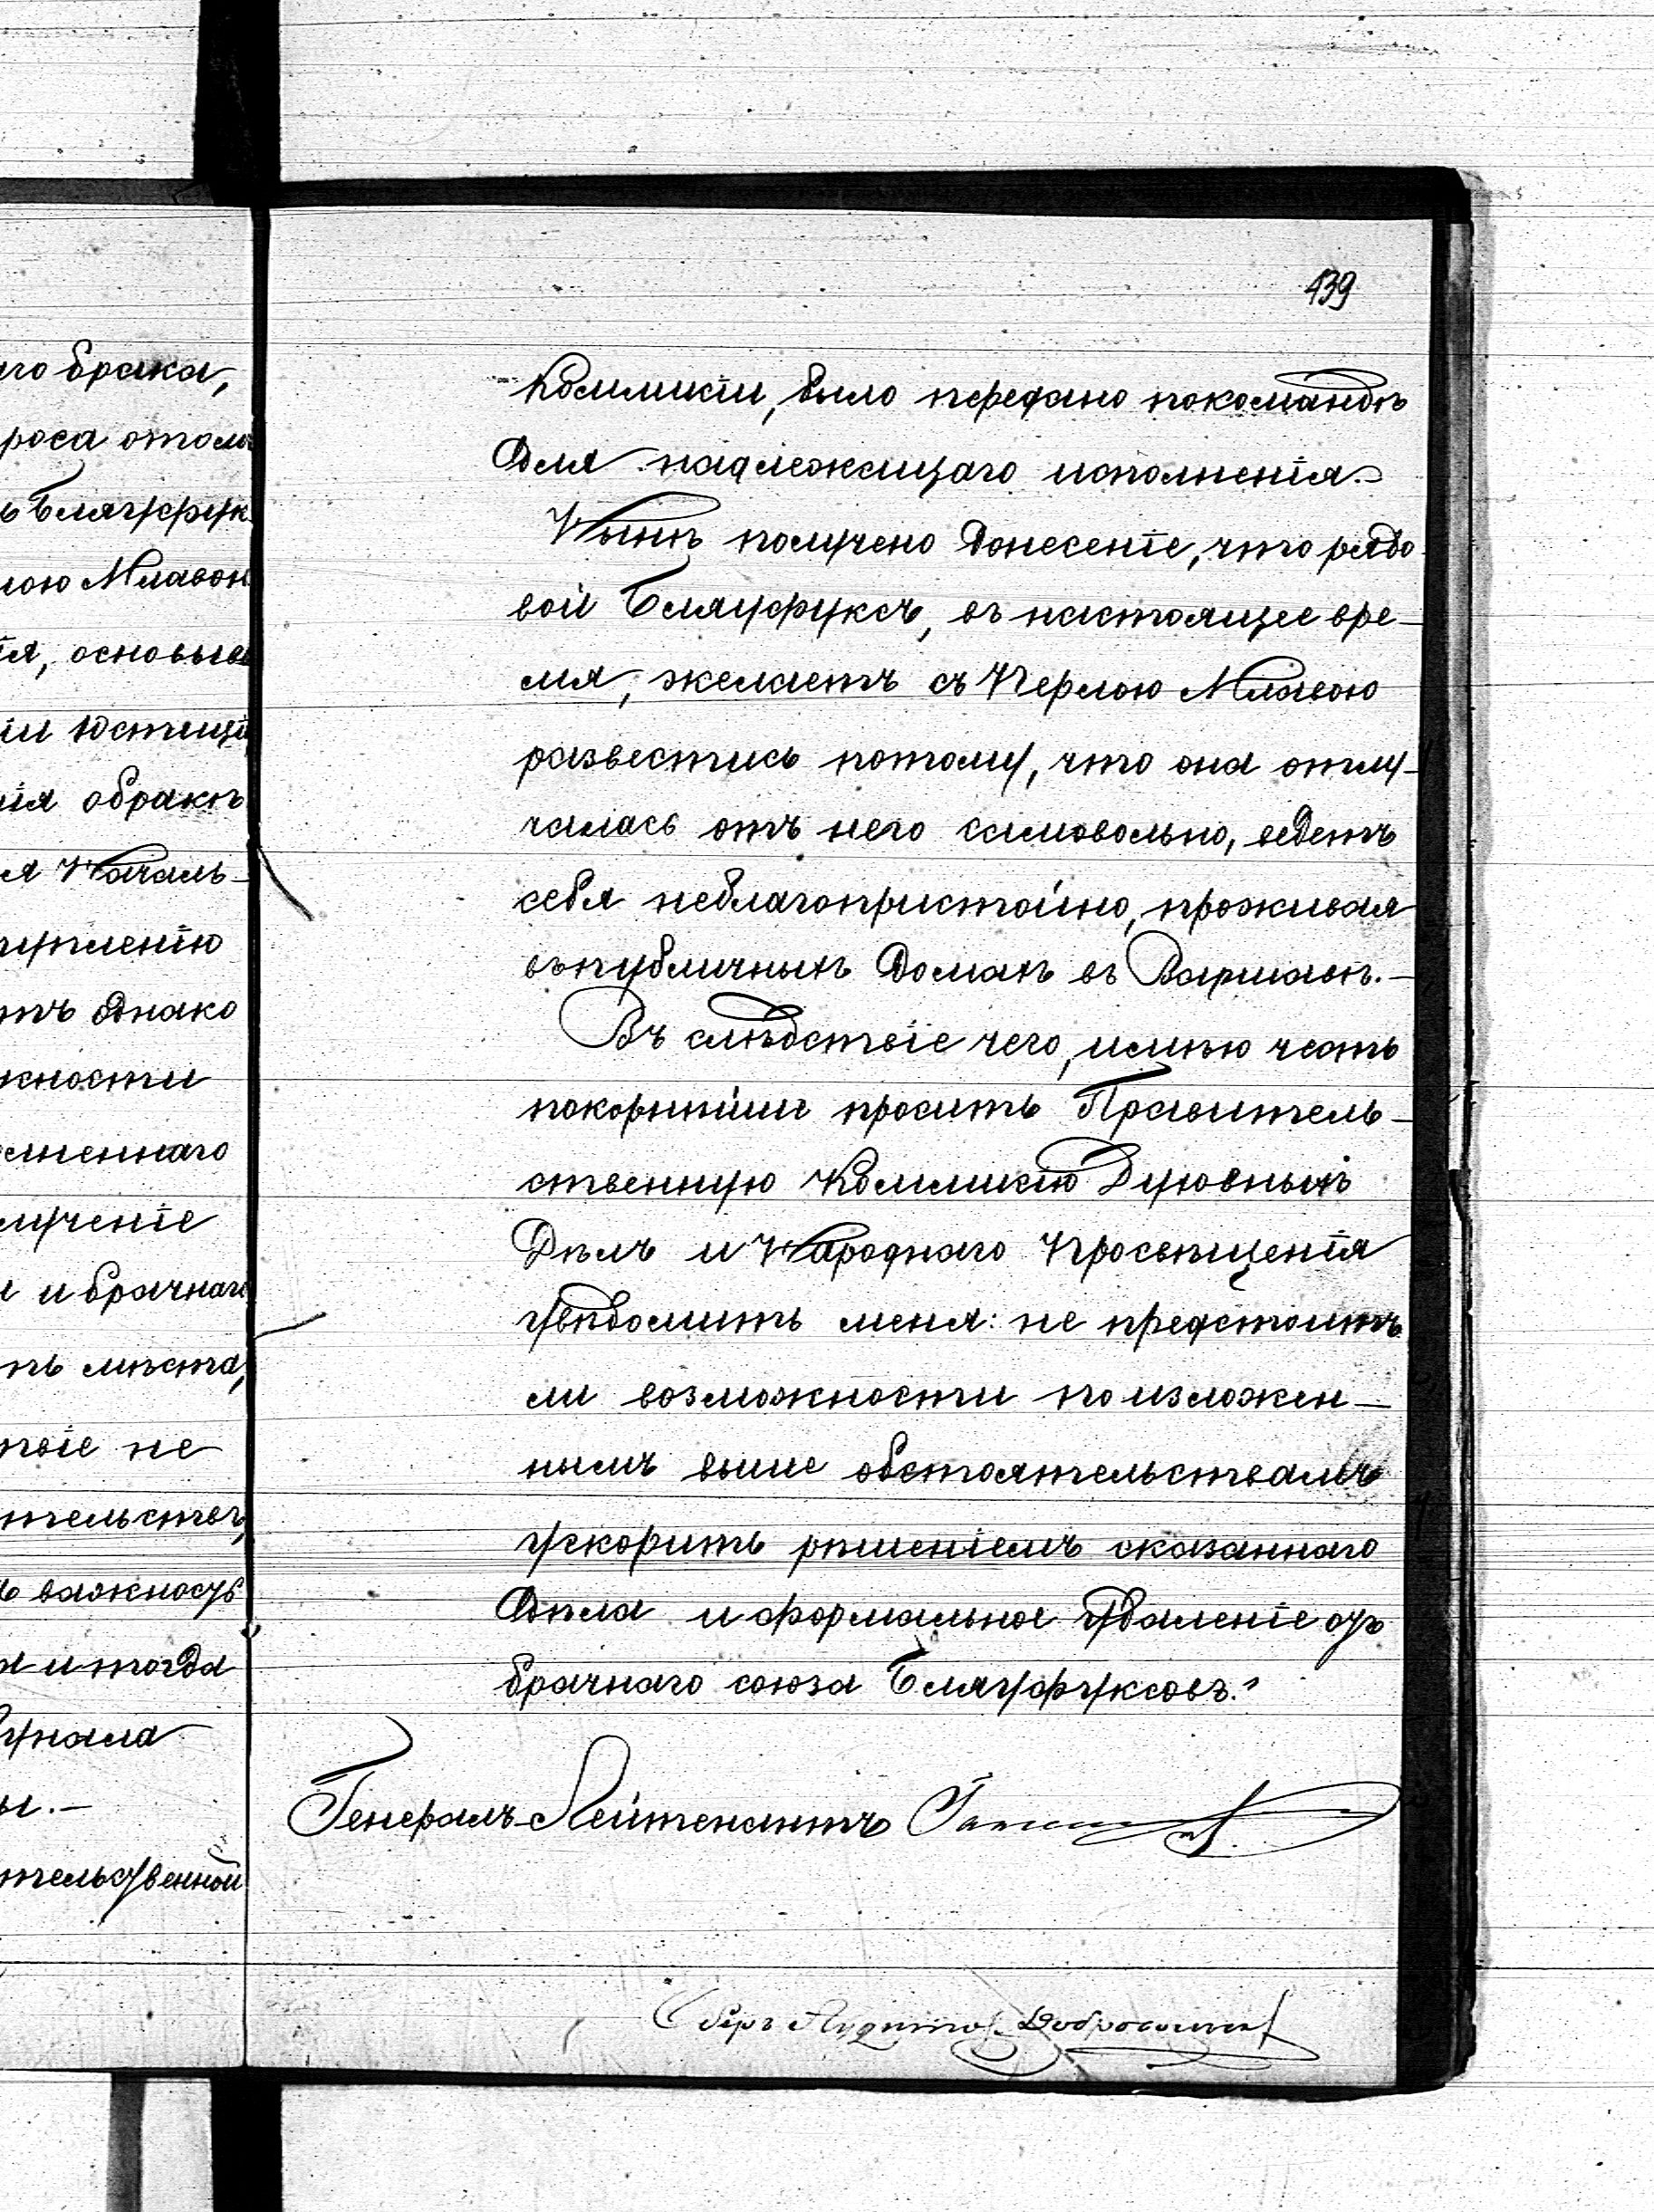 439
Коммисіи, было передано покомандѣ
для надлежащаго исполненія.–
Нынѣ получено донесеніе, что рядо-
вой Бляуфуксъ, въ настоящее вре-
мя, желаетъ съ Перлою Млавою
развестись потому, что она отлу-
чалась отъ него самовольно, ведетъ
себя неблагопристойно, проживая
въпубличныхъ домахъ въ Варшавѣ.–
Въ слѣдствіе чего, имѣю честь
покорнѣйше просить Правитель-
ственную Коммисію Духовныхъ
Дѣлъ и Народнаго Просвѣщенія
увѣдомить меня: не предстоитъ
ли возможности по изложен-
нымъ выше обстоятельствамъ
ускорить рѣшеніемъ сказаннаго
дѣла и формальное удаленіе отъ
брачнаго союза Бляуфуксовъ.
Генералъ-Лейтенантъ
Оберъ Аудиторъ
го брака,
роса отомъ
ь Бляуфук
лою Млавою
ія, основыва
іи Юстиціи
нія обракѣ
я Началь-
уплению
тъ однако
жности
лненнаго
лученіе
и и брачнаго
тъ мѣста,
твіе не
тельствъ,
ь важность
а и тогда
урнала
ы.–
тельственной